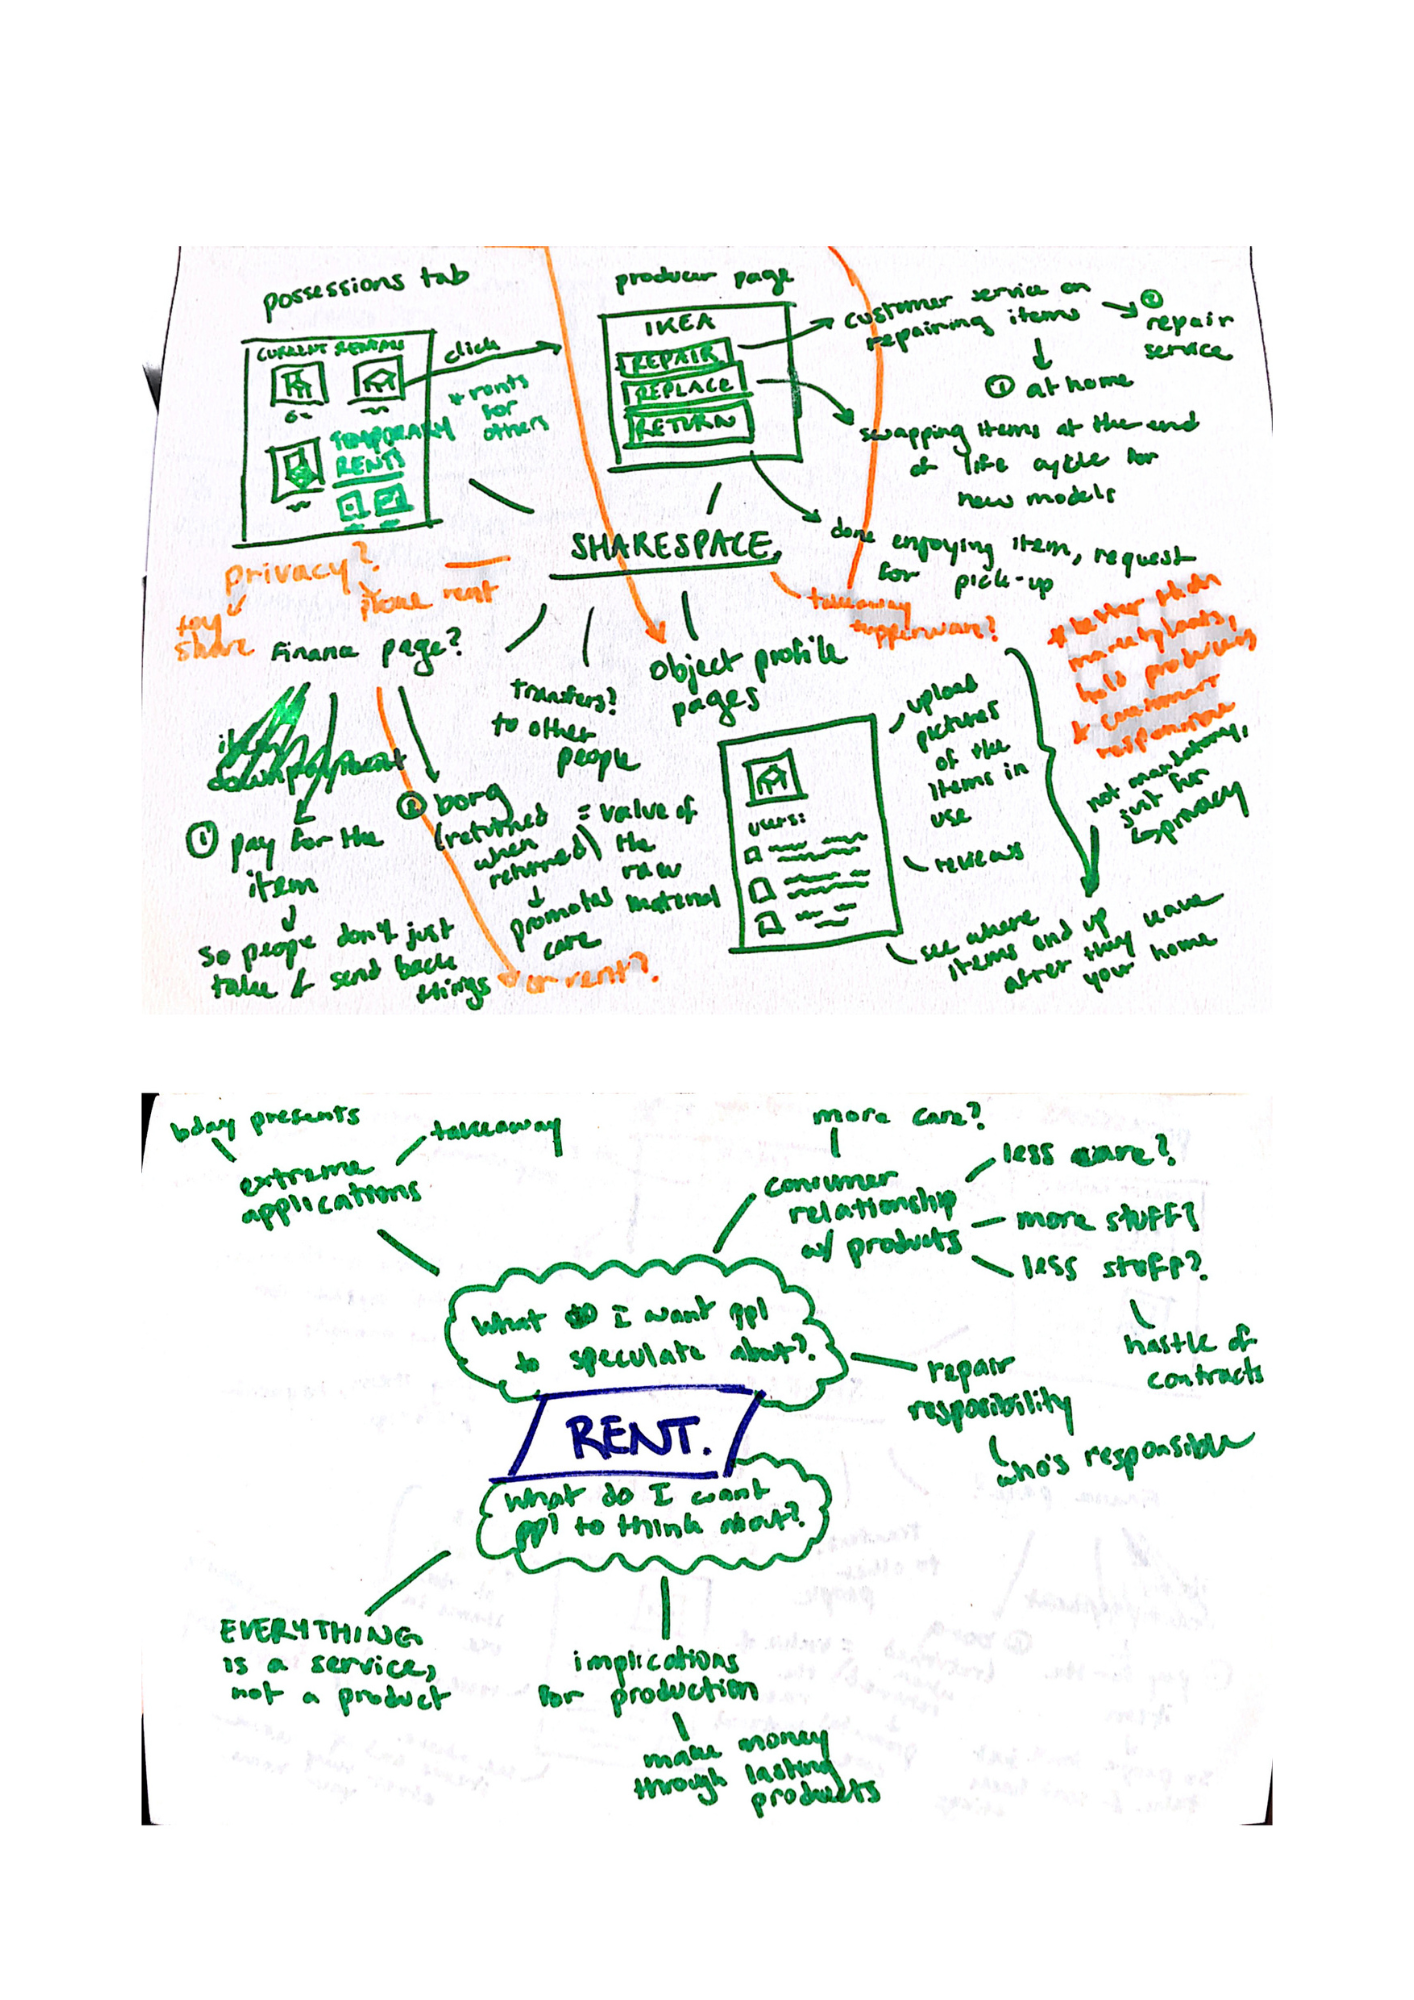 possessions tab
CURRENT RENTALS
click
* rents
for
others
TEMPORARY
RENTS
producer page
IKEA
REPAIR
REPLACE
RETURN
customer service on
repairing items
② repair
service
① at home
swapping items at the end
of life cycle for
new models
done enjoying item, request
for pick-up
SHARESPACE
privacy?
toy
share
rent
takeaway
tupperware?
Finance page?
downpayment
① pay for the
item
so people don't just
take & send back
things
② borg
(returned
when
returned)
= value of
the
raw
material
promotes
care
or rent?
transfers?
to other
people
object profile
pages
users:
upload
pictures
of the
items in
use
reviews
see where
items end up
after they leave
your home
* better than
marketplaats,
hold producers
& customer
responsible
not mandatory,
just for
privacy
bday presents
takeaway
extreme
applications
more care?
less care?
consumer
relationship
w/ products
more stuff?
less stuff?
hastle of
contracts
What do I want ppl
to speculate about?
repair
resposibility
who's responsible
RENT.
What do I want
ppl to think about?
EVERYTHING
is a service,
not a product
implications
for production
make money
through lasting
products